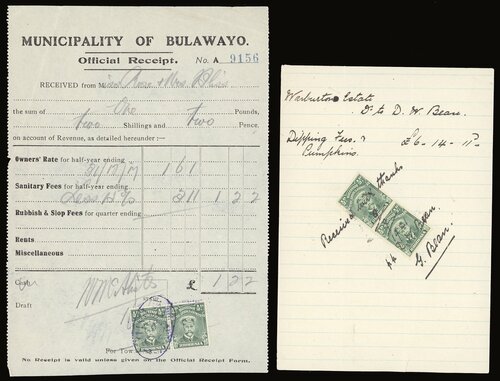 MUNICIPALITY OF BULAWAYO.
Official Receipt. No. A 9156
RECEIVED from
the sum of One Pounds,
Two Shillings and Two Pence,
on account of Revenue, as detailed hereunder :—
Owners' Rate for half-year ending
Sanitary Fees for half-year ending
Rubbish & Slop Fees for quarter ending
Rents
Miscellaneous
Draft £ 1 2 2
For Town
No Receipt is valid unless given on the Official Receipt Form.
Warburton Estate
Dr to D. W Bean.
Dipping Fees &
Pumpkins. £6 - 14 - 11
Received thanks
G. Bean.